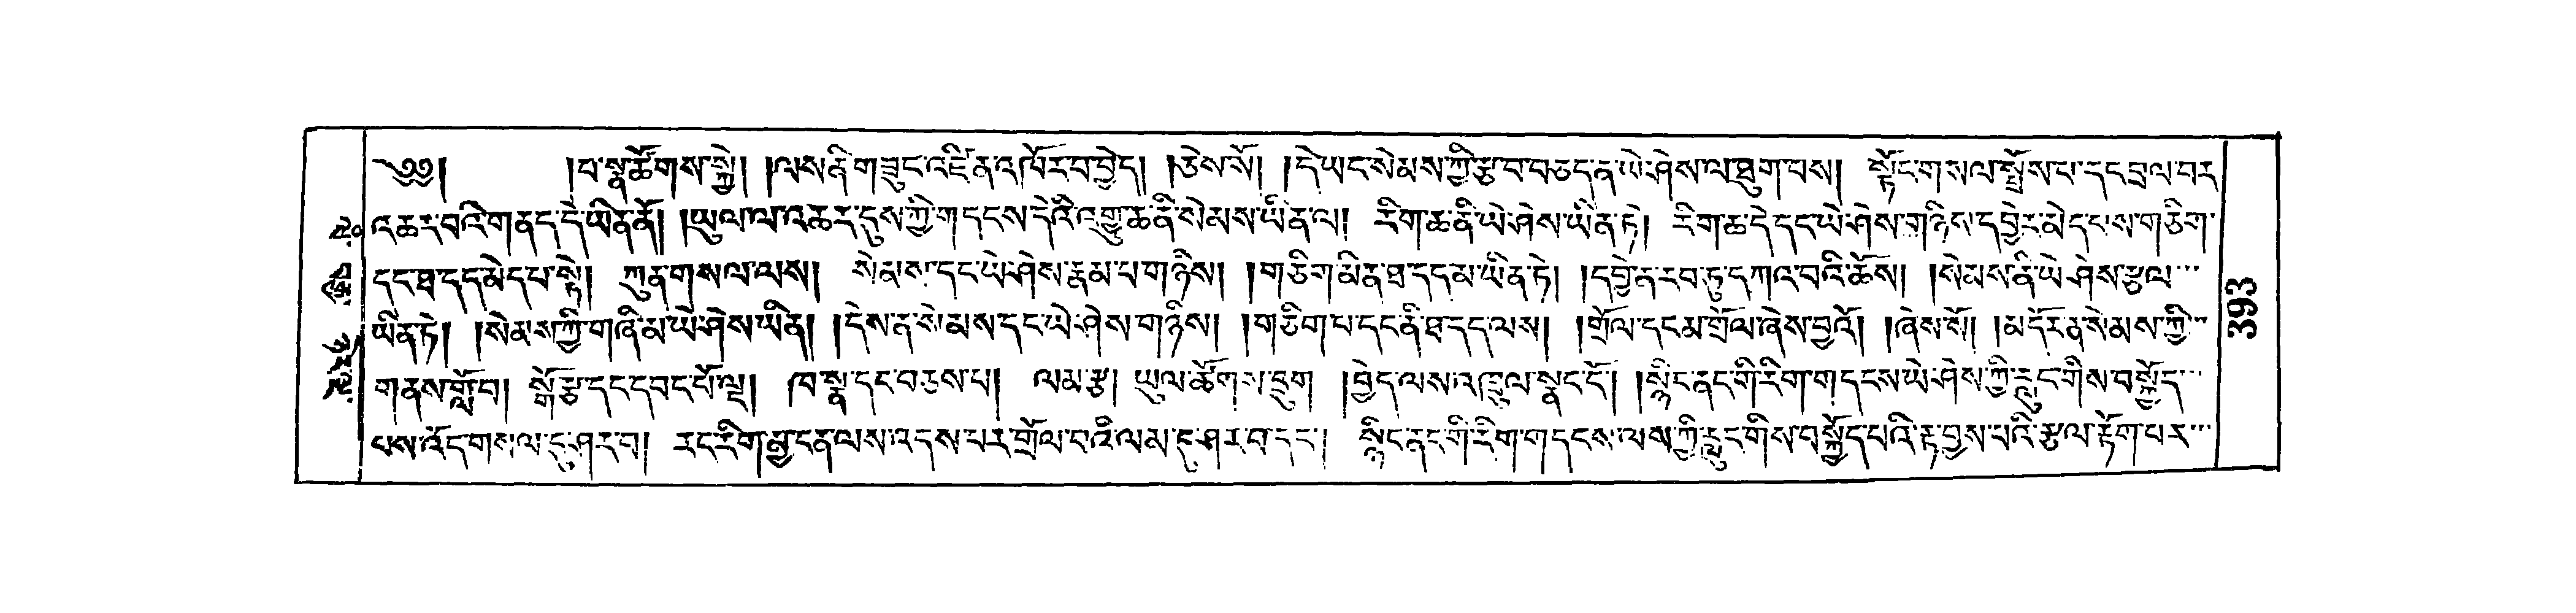 ༄༅། །བ་སྣ་ཚོགས་སྐྱེ། །ལས་ནི་གཟུང་འཛིན་འཁོར་བ་བྱེད། །ཅེས་སོ། །དེ་ཡང་སེམས་ཀྱི་རྩ་བ་བཅད་ན་ཡེ་ཤེས་ལ་ཐུག་པས། སྟོང་གསལ་སྤྲོས་པ་དང་བྲལ་བར
འཆར་བའི་གནད་དེ་ཡིན་ནོ། །ཡུལ་ལ་འཆར་དུས་ཀྱི་གདངས་དེའི་འགྱུ་ཆ་ནི་སེམས་ཡིན་ལ། རིག་ཆ་ནི་ཡེ་ཤེས་ཡིན་ཏེ། རིག་ཆ་དེ་དང་ཡེ་ཤེས་གཉིས་དབྱེར་མེད་པས་གཅིག་
དང་ཐ་དད་མེད་པ་སྟེ། ཀུན་གསལ་ལས། སེམས་དང་ཡེ་ཤེས་རྣམ་པ་གཉིས། །གཅིག་མིན་ཐ་དད་མ་ཡིན་ཏེ། །དབྱེ་ན་རབ་ཏུ་དཀའ་བའི་ཆོས། །སེམས་ནི་ཡེ་ཤེས་རྩལ་
ཡིན་ཏེ། །སེམས་ཀྱི་གཞི་མ་ཡེ་ཤེས་ཡིན། །དེས་ན་སེམས་དང་ཡེ་ཤེས་གཉིས། །གཅིག་པ་དང་ནི་ཐ་དད་ལས། །གྲོལ་དང་མ་གྲོལ་ཞེས་བྱའོ། །ཞེས་སོ། །མདོར་ན་སེམས་ཀྱི་
གནས་གློ་བ། སྒོ་རྩ་དང་དབང་པོ་ལྔ། ཁ་སྣ་དང་བཅས་པ། ལམ་རྩ། ཡུལ་ཚོགས་དྲུག །བྱེད་ལས་འཁྲུལ་སྣང་ངོ། །སྙིང་ནང་གི་རིག་གདངས་ཡེ་ཤེས་ཀྱི་རླུང་གིས་བསྐྱོད་
པས་འོད་གསལ་དུ་ཤར་བ། རང་རིག་མྱ་ངན་ལས་འདས་པར་གྲོལ་བའི་ལམ་དུ་ཤར་བ་དང་། སྙིང་ནང་གི་རིག་གདངས་ལས་ཀྱི་རླུང་གིས་བསྐྱོད་པའི་རྟ་བྱས་པའི་རྩལ་རྟོག་པར་